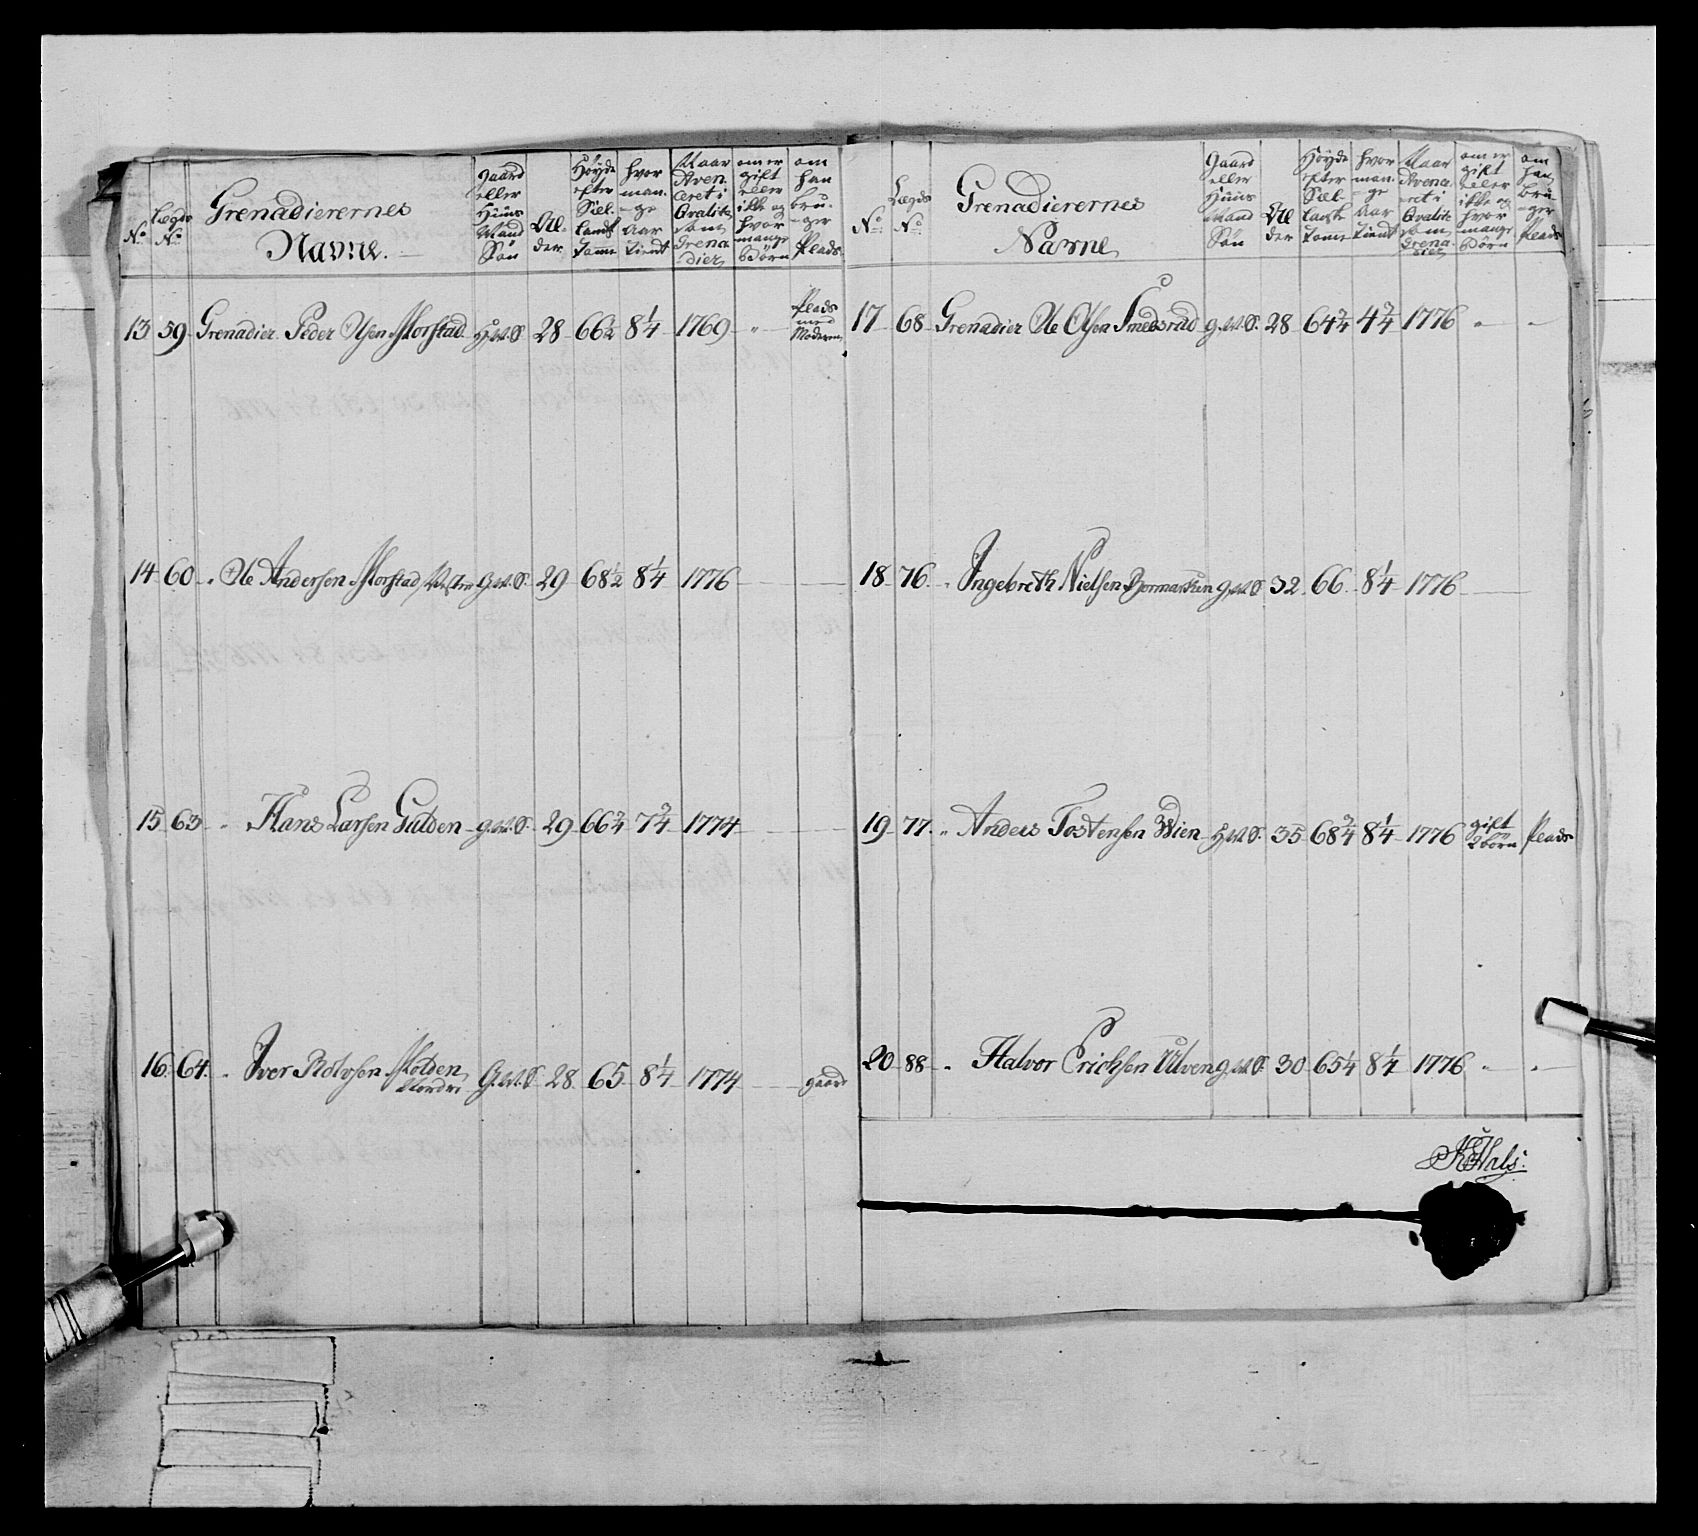 No
Lægds No
Grenadierernes Navne.
Gaard eller Huus Mand Søn
Al- der
Høyde efter Siel- landsk Tomme
hvor man- ge Aar tient
Naar Aven- ceret i Qvalite som Grena- dier
om er gift eller ikke og hvor mange Børn
om han bru- ger Plads
13 59 Grenadier Peder Olsen Morstad H.M.S 28 66½ 8¼ 1769 " Plads med Moderen
14 60 " Ole Andersen Morstad G.M.S. 29 68½ 8¼ 1776
15 63 " Hans Larsen Gulden g.M.S. 29 66 2/4 7 2/4 1774
16 64 " Iver Rolvsen Molden Nordre G.M.S 28 65 8¼ 1774 gaard
No
Lægds No
Grenadierernes Navne
Gaard eller Huus Mand Søn
Al der
Høyde efter Siel- landsk Tome
hvor man- ge Aar tient
Naar Avence- ret i Qvalite som Grena- dier
om er gift eller ikke og hvor mange Børn
om han bru- ger Plads
17 68 Grenadier Ole Olsen Smedsrud g.M.S. 28 64¾ 4 2/4 1776 " "
18 76 " Ingebreth Nielsen g.M.S 32 66 8¼ 1776
19 77 " Anders Tostensen Wien H.M.S. 35 68¾ 8¼ 1776 gift 2 børn Plads
20 88 " Halvor Erichsen Ulven g.M.S. 30 65¼ 8¼ 1776 " "